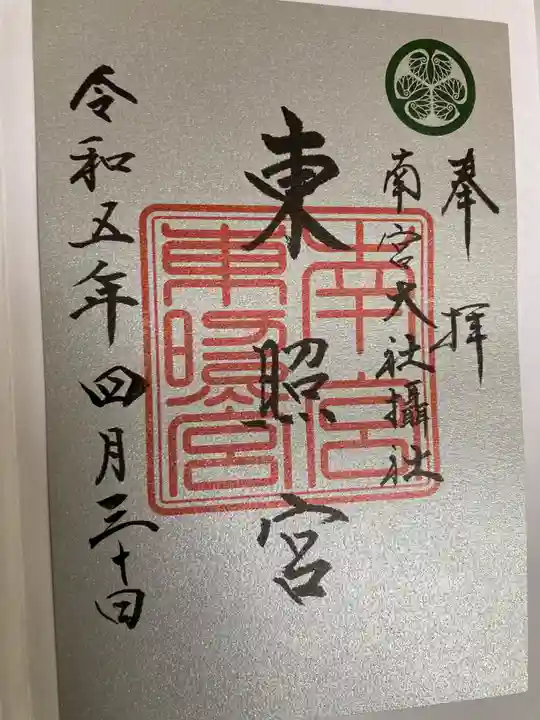 奉拝
南宮大社攝社
東照宮
南宮
東照宮
令和五年四月三十日